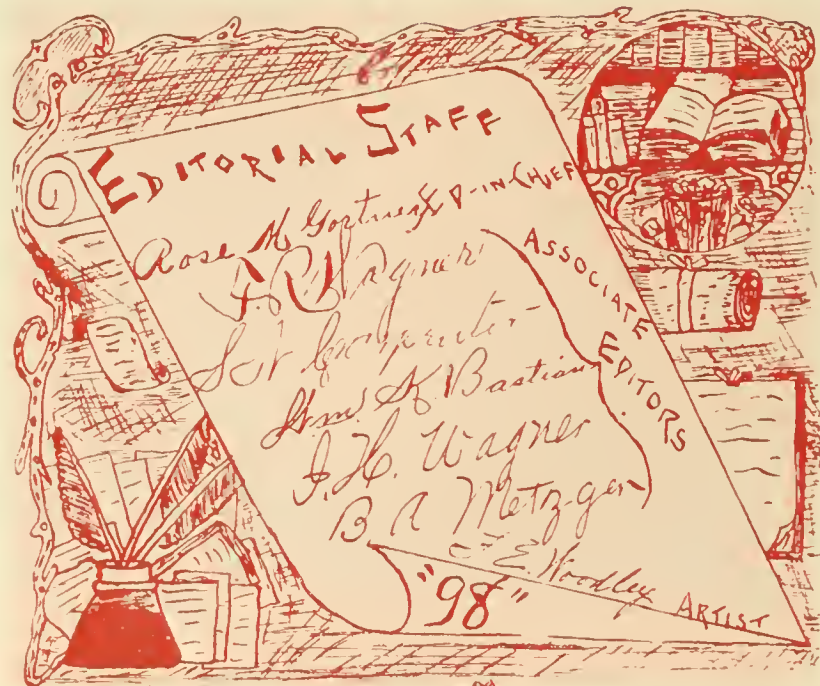 EDITORIAL STAFF
Rose M Gortner ED-IN-CHIEF
Wagner
S N Carpenter
Wm. K Bastian
J. H. Wagner
B A Metzger
ASSOCIATE
EDITORS
E. Woodley ARTIST
"98"